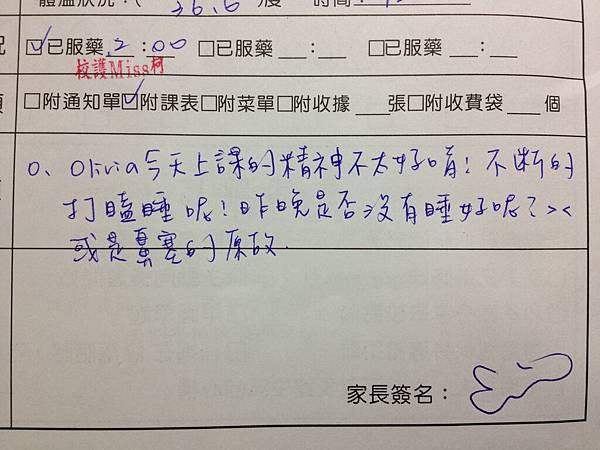 體溫狀況:( 36.6 )度 時間:
☑已服藥 2:00 □已服藥 __:__ □已服藥 __:__
校護Miss柯
□附通知單☑附課表□附菜單□附收據 ___張□附收費袋 ___個
0、Olivia今天上課的精神不太好唷!不斷的
打瞌睡呢!昨晚是否沒有睡好呢?><
或是鼻塞的原故.
家長簽名: